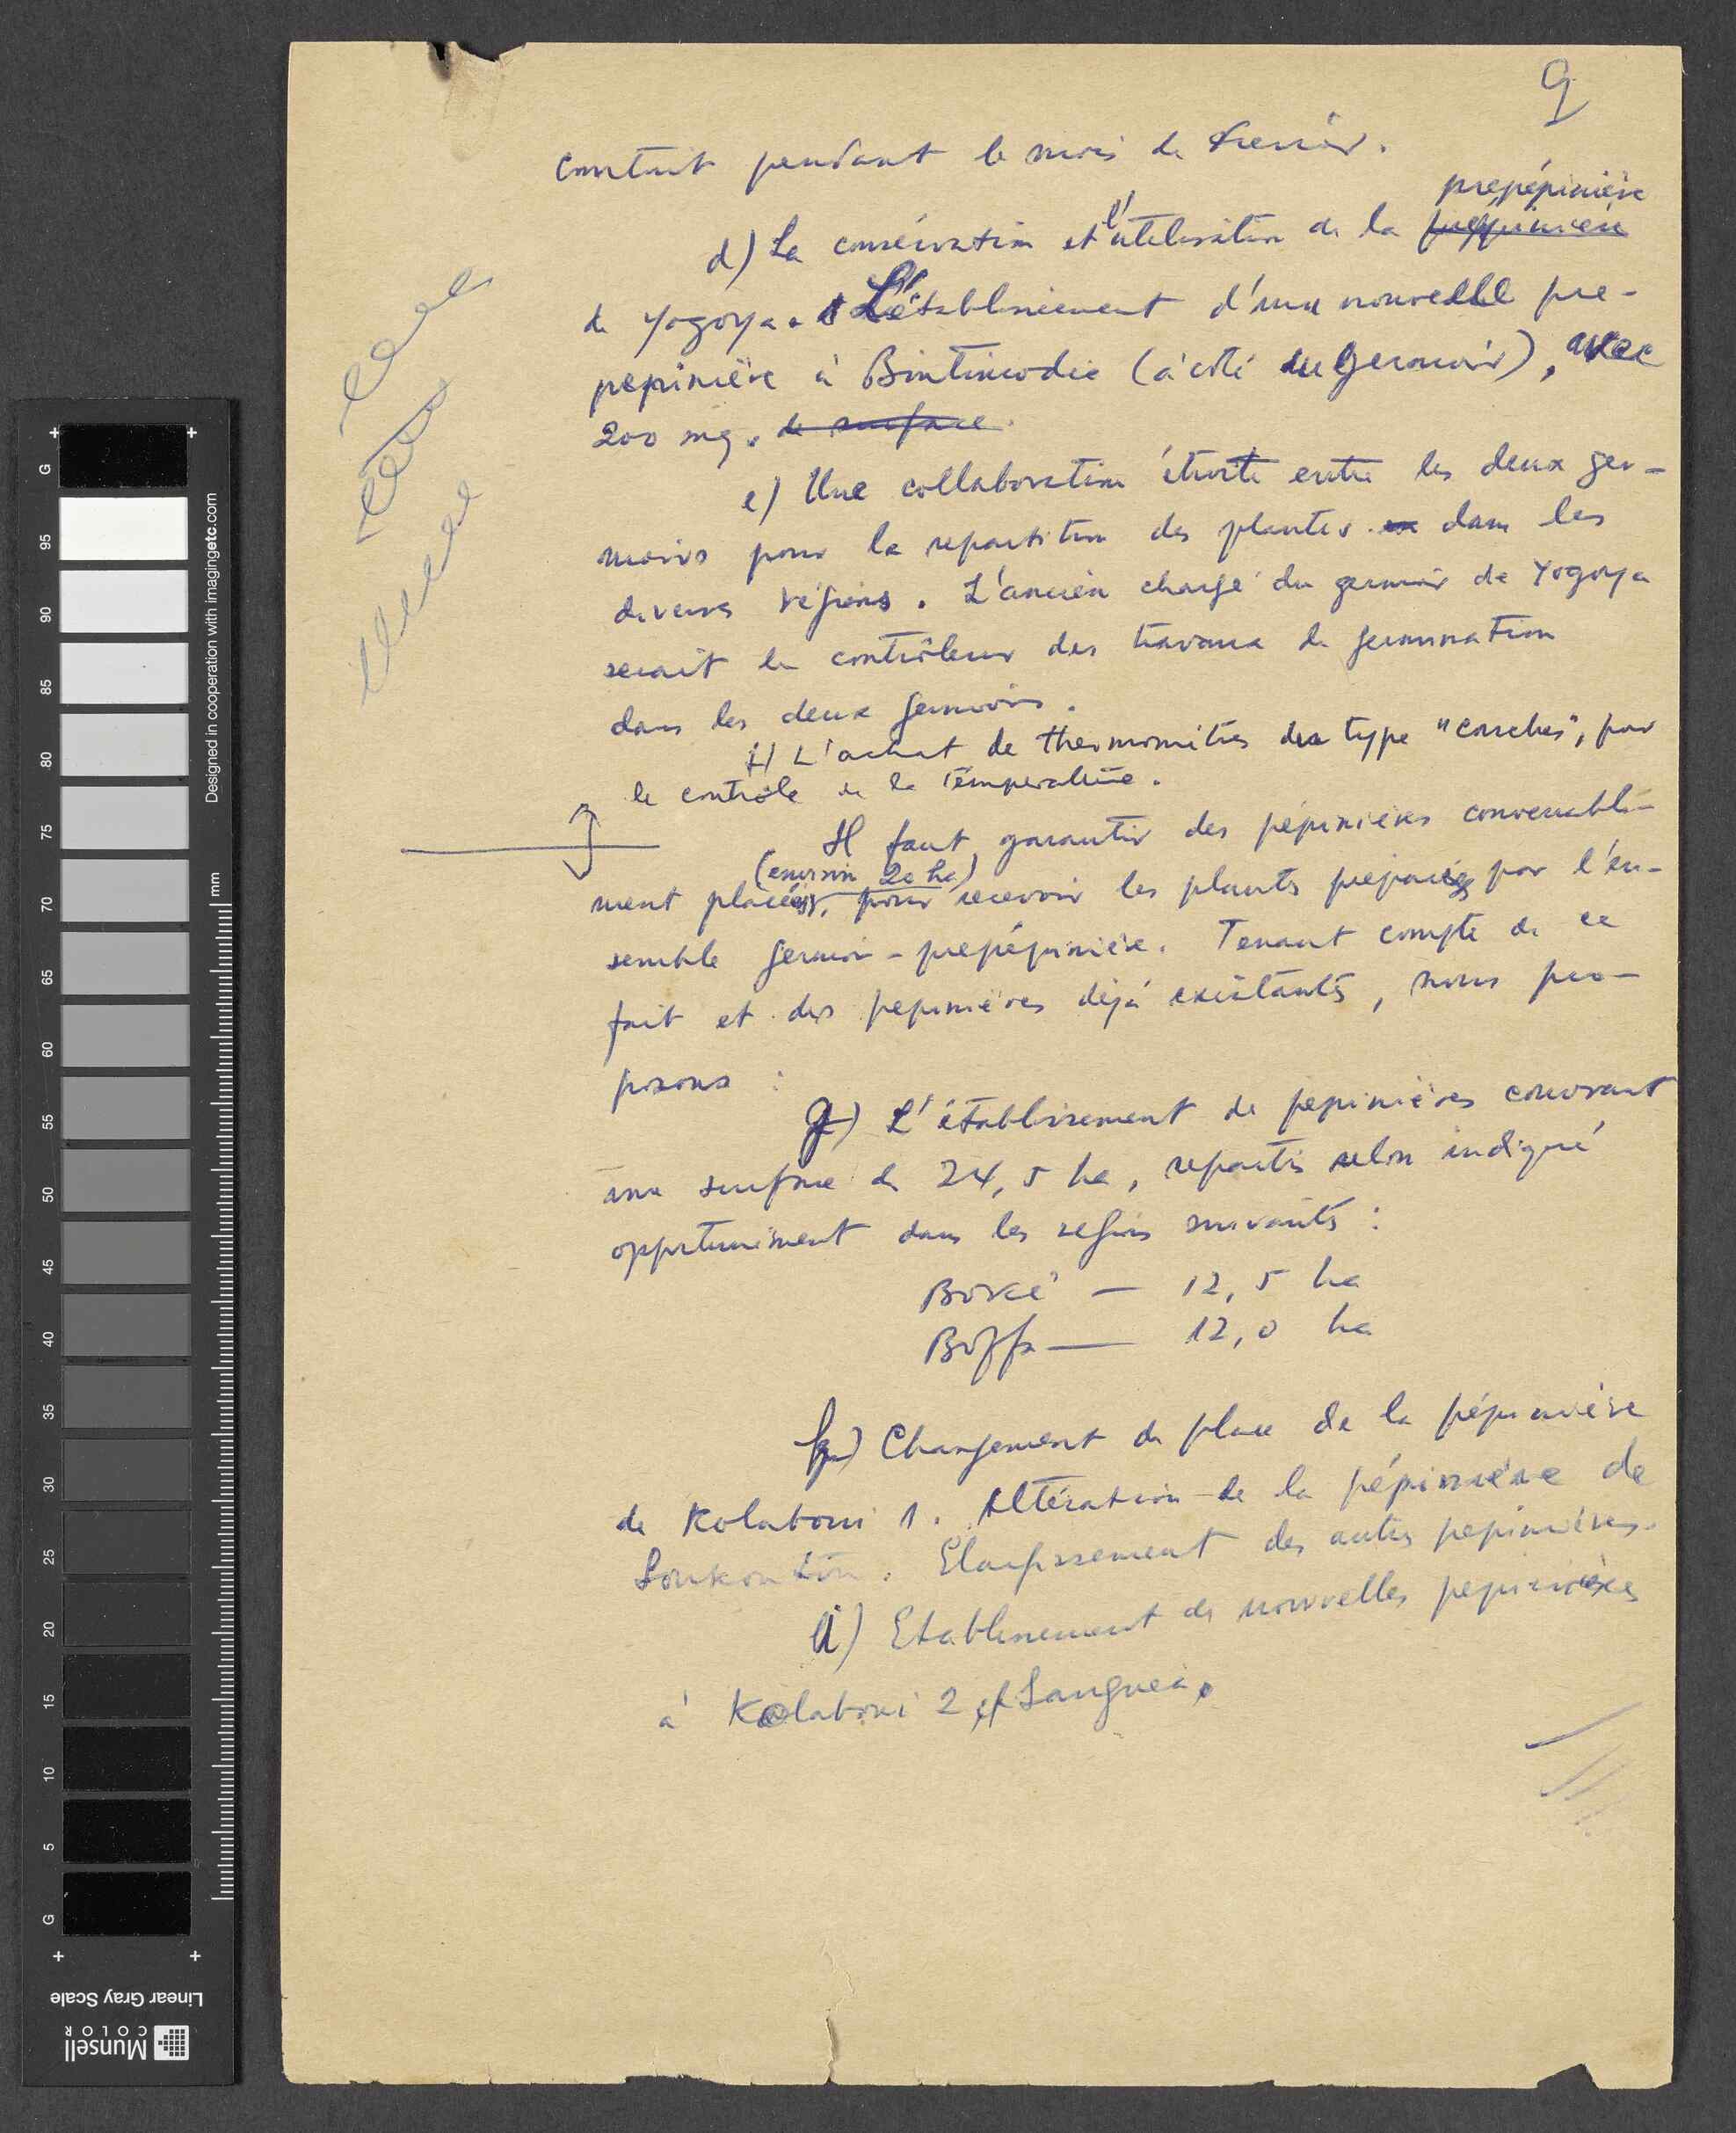 9
construit pendant le mois de Fevrier.
prepépinière
d) La conservation et l'utilisation de la prepépinière
de Yogoya. L'établissement d'une nouvelle pre-
pepinière à Bintimodie (à côté du germoir), avec
200 mq. de surface
e) Une collaboration étroite entre les deux ger-
moirs pour la repartition des plantes dans les
diverses régions. L'ancien chargé du germoir de Yogoya
serait le contrôleur des travaux de germination
dans les deux germoirs.
f) L'achat de thermomètres du type "couches", pour
le contrôle de la température.
Il faut garantir des pépinières convenable-
(environ 20 ha)
ment placées, pour recevoir les plants préparés par l'en-
semble germoir-prepépinière. Tenant compte de ce
fait et des pepinières déjà existantes, nous pro-
posons :
g) L'établissement de pepinières couvrant
une surface de 24,5 ha, repartis selon indiqué
opportunément dans les regions suivantes :
Boké — 12,5 ha
Boffa — 12,0 ha
h) Changement de place de la pépinière
de Kolaboui 1. Altération de la pépinière de
Elargissement des autres pepinières.
i) Etablissement de nouvelles pepinières
à Kolaboui 2 et Sanguea.
Designed in cooperation with imagingetc.com
mm
G
95
90
85
80
75
70
65
60
55
50
45
40
35
30
25
20
15
10
5
G
Linear Gray Scale
Munsell
COLOR